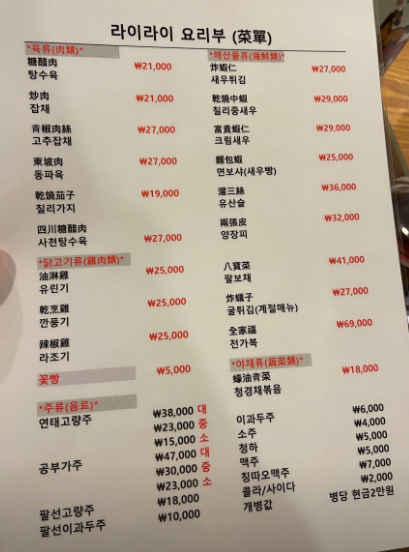 라이라이 요리부 (菜單)
*육류(肉類)*
糖醋肉
탕수육 ₩21,000
炒肉
잡채 ₩21,000
青椒肉絲
고추잡채 ₩27,000
東坡肉
동파육 ₩27,000
乾燒茄子
칠리가지 ₩19,000
四川糖醋肉
사천탕수육 ₩27,000
*닭고기류(雞肉類)*
油淋雞
유린기 ₩25,000
乾烹雞
깐풍기 ₩25,000
辣椒雞
라조기 ₩25,000
꽃빵 ₩5,000
*주류(음료)*
연태고량주 ₩38,000 대
₩23,000 중
₩15,000 소
공부가주 ₩47,000 대
₩30,000 중
₩23,000 소
팔선고량주 ₩18,000
팔선이과두주 ₩10,000
*해산물류(海鮮類)*
炸蝦仁
새우튀김 ₩27,000
乾燒中蝦
칠리중새우 ₩29,000
富貴蝦仁
크림새우 ₩29,000
麵包蝦
면보샤(새우빵) ₩25,000
溜三絲
유산슬 ₩36,000
兩張皮
양장피 ₩32,000
八寶菜
팔보채 ₩41,000
炸蠣子
굴튀김(계절메뉴) ₩27,000
全家福
전가복 ₩69,000
*야채류(蔬菜類)*
蠔油青菜
청경채볶음 ₩18,000
이과두주 ₩6,000
소주 ₩4,000
청하 ₩5,000
맥주 ₩5,000
칭따오맥주 ₩7,000
콜라/사이다 ₩2,000
개병값 병당 현금2만원